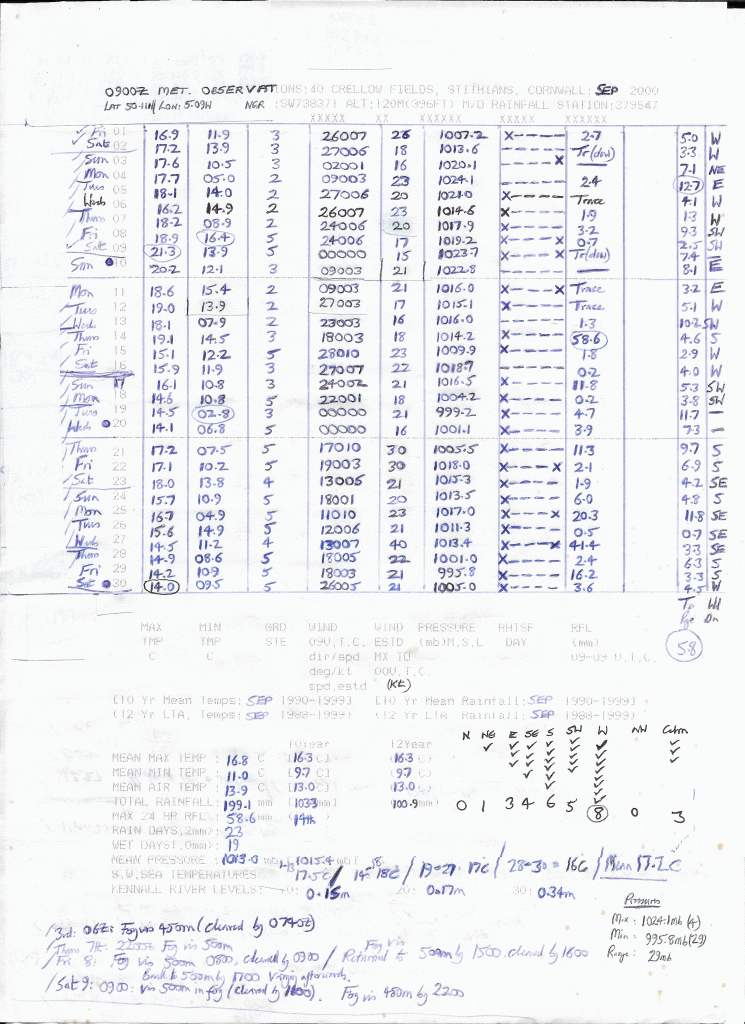 0900Z MET. OBSERVATIONS:40 CRELLOW FIELDS, STITHIANS, CORNWALL: SEP 2000
LAT 50-11N/LON: 5-09W NGR :SW738371 ALT:120M(396FT) M/O RAINFALL STATION:379547
XXXXX XX XXXXXX XXXXX XXXXXX
Fri 01 16.9 11.9 3 26007 26 1007.2 X---- 2.7 5.0 W
Sat 02 17.2 13.9 3 27006 18 1013.6 ----- Tr(dew) 3.3 W
Sun 03 17.6 10.5 3 02001 16 1020.1 ----X — 7.1 NE
Mon 04 17.7 05.0 2 09003 23 1024.1 ----- 2.4 12.7 E
Tues 05 18.1 14.0 2 27006 20 1021.0 X---- Trace 4.1 W
Weds 06 16.2 14.9 2 26007 23 1014.6 X---- 1.9 1.3 W
Thurs 07 18.2 08.9 2 24006 20 1017.9 X---- 3.2 9.3 SW
Fri 08 18.9 16.4 5 24006 17 1019.2 X---X 0.7 2.5 SW
Sat 09 21.3 13.9 5 00000 15 1023.7 ----X Tr(dew) 7.4 —
Sun 10 20.2 12.1 3 09003 21 1022.8 ----- — 8.1 E
Mon 11 18.6 15.4 2 09003 21 1016.0 X---X Trace 3.2 E
Tues 12 19.0 13.9 2 27003 17 1015.1 ----- Trace 5.1 W
Weds 13 18.1 07.9 2 23003 16 1016.0 ----- 1.3 10.2 SW
Thurs 14 19.1 14.5 3 18003 18 1014.2 ----- 58.6 4.6 S
Fri 15 15.1 12.2 5 28010 23 1009.9 X---- 1.8 2.9 W
Sat 16 15.9 11.9 3 27007 22 1018.7 ----- 0.2 4.0 W
Sun 17 16.1 10.8 3 24002 21 1016.5 X---- 11.8 5.3 SW
Mon 18 14.6 10.8 5 22001 18 1004.2 X---- 0.2 3.8 SW
Tues 19 14.5 02.8 3 00000 21 999.2 X---- 4.7 11.7 —
Weds 20 14.1 06.8 5 00000 16 1001.1 X---- 3.9 7.3 —
Thurs 21 17.2 07.5 5 17010 30 1005.5 X---- 11.3 9.7 S
Fri 22 17.1 10.2 5 19003 30 1018.0 X---X 2.1 6.9 S
Sat 23 18.0 13.8 4 13005 21 1015.3 X---- 1.9 4.2 SE
Sun 24 15.7 10.9 5 18001 20 1013.5 X---- 6.0 4.8 S
Mon 25 16.7 04.9 5 11010 23 1017.0 X---X 20.3 11.8 SE
Tues 26 15.6 14.9 5 12006 21 1011.3 X---- 0.5 0.7 SE
Weds 27 14.5 11.2 4 13007 40 1013.4 X---X 41.4 3.3 SE
Thurs 28 14.9 08.6 5 18005 22 1001.0 X---- 2.4 6.3 S
Fri 29 14.2 10.9 5 18003 21 995.8 X---- 16.2 3.3 S
Sat 30 14.0 09.5 5 26005 21 1005.0 X---- 3.6 4.5 W
MAX MIN GRD WIND WIND PRESSURE RHTSF RFL
TMP TMP STE 09U.T.C. ESTD (mb)M.S.L DAY (mm)
C C dir/spd MX TO 09-09 U.T.C.
deg/kt 00U.T.C.
spd.estd (Kt)
58
[10 Yr Mean Temps: SEP 1990-1999] [10 Yr Mean Rainfall: SEP 1990-1999]
(12 Yr LTA, Temps: SEP 1988-1999) (12 Yr LTA Rainfall: SEP 1988-1999)
N NE E SE S SW W NW Calm
10Year 12Year
MEAN MAX TEMP : 16.8 C 16.3 C 16.3 C
MEAN MIN TEMP : 11.0 C 9.7 C 9.7 C
MEAN AIR TEMP : 13.9 C 13.0 C 13.0 C
TOTAL RAINFALL: 199.1 mm 103.1 mm 100.9 mm 0 1 3 4 6 5 8 0 3
MAX 24 HR RFL : 58.6 mm 14th
RAIN DAYS(.2mm): 23
WET DAYS(1.0mm): 19
MEAN PRESSURE : 1013.0 mb 1015.4 mb
S.W.SEA TEMPERATURES 1-13 17.5C / 14-18 18C / 19-27 17C / 28-30 = 16C / Mean 17.2C
KENNALL RIVER LEVELS: 10: 0.15m 20: 0.17m 30: 0.34m
Pressure
Max: 1024.1mb (4)
Min: 995.8mb (29)
Range: 29mb
3rd: 06Z: Fog vis 450m (cleared by 0740Z)
Thurs 7th: 2200Z Fog vis 500m
Fri 8: Fog vis 500m 0800, cleared by 0900 / Fog vis Returned to 500m by 1500. cleared by 1600
Back to 500m by 1700 Varying afterwards.
Sat 9: 0900: vis 500m in fog (cleared by 1100). Fog vis 450m by 2200